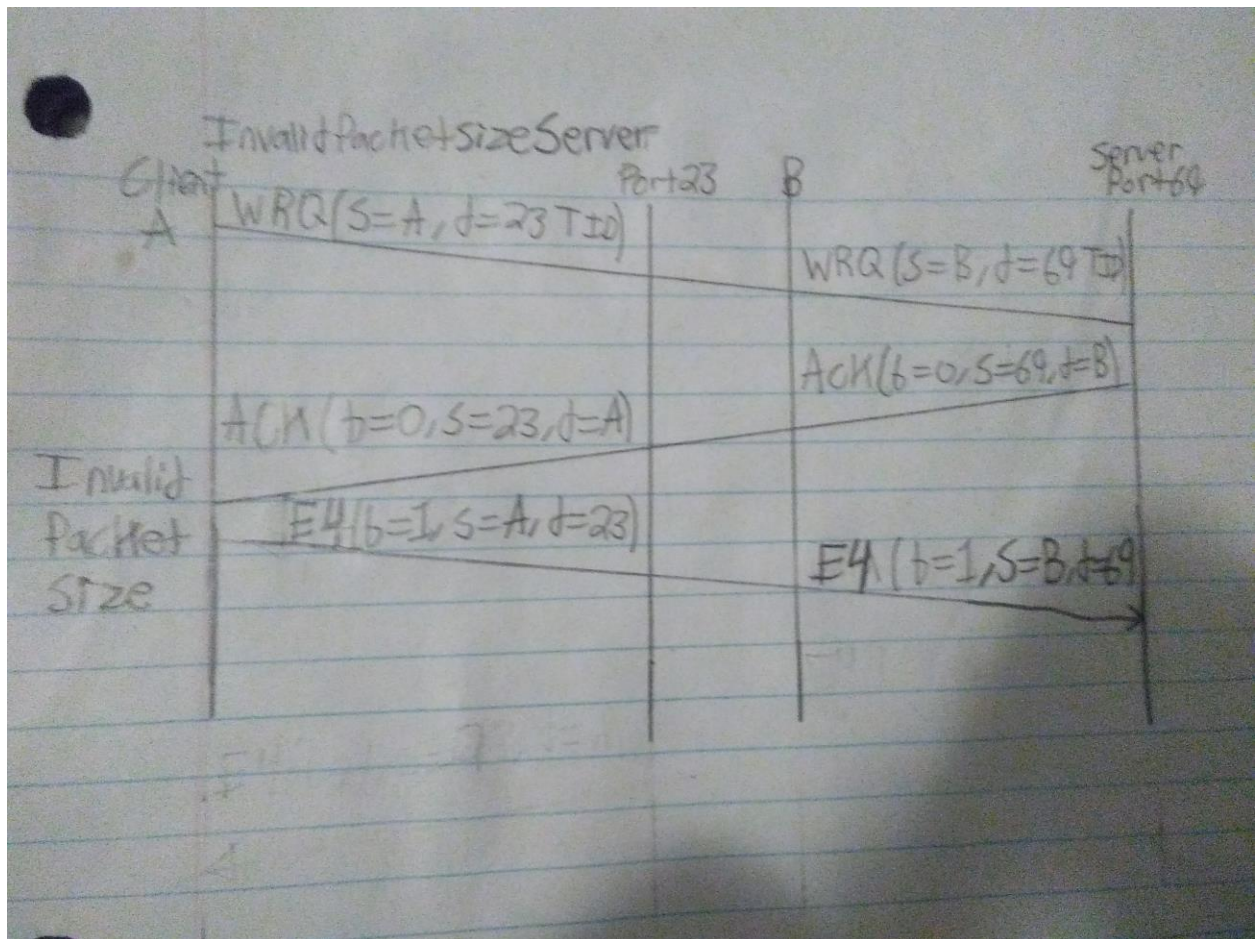 InvalidPacketsizeServer
Client
A
Port23
B
Server
Port69
WRQ(S=A, d=23 TID)
WRQ(S=B, d=69 TID)
ACK(b=0, S=69, d=B)
ACK(b=0, S=23, d=A)
Invalid
Packet
Size
E4(b=1, S=A, d=23)
E4(b=1, S=B, d=69